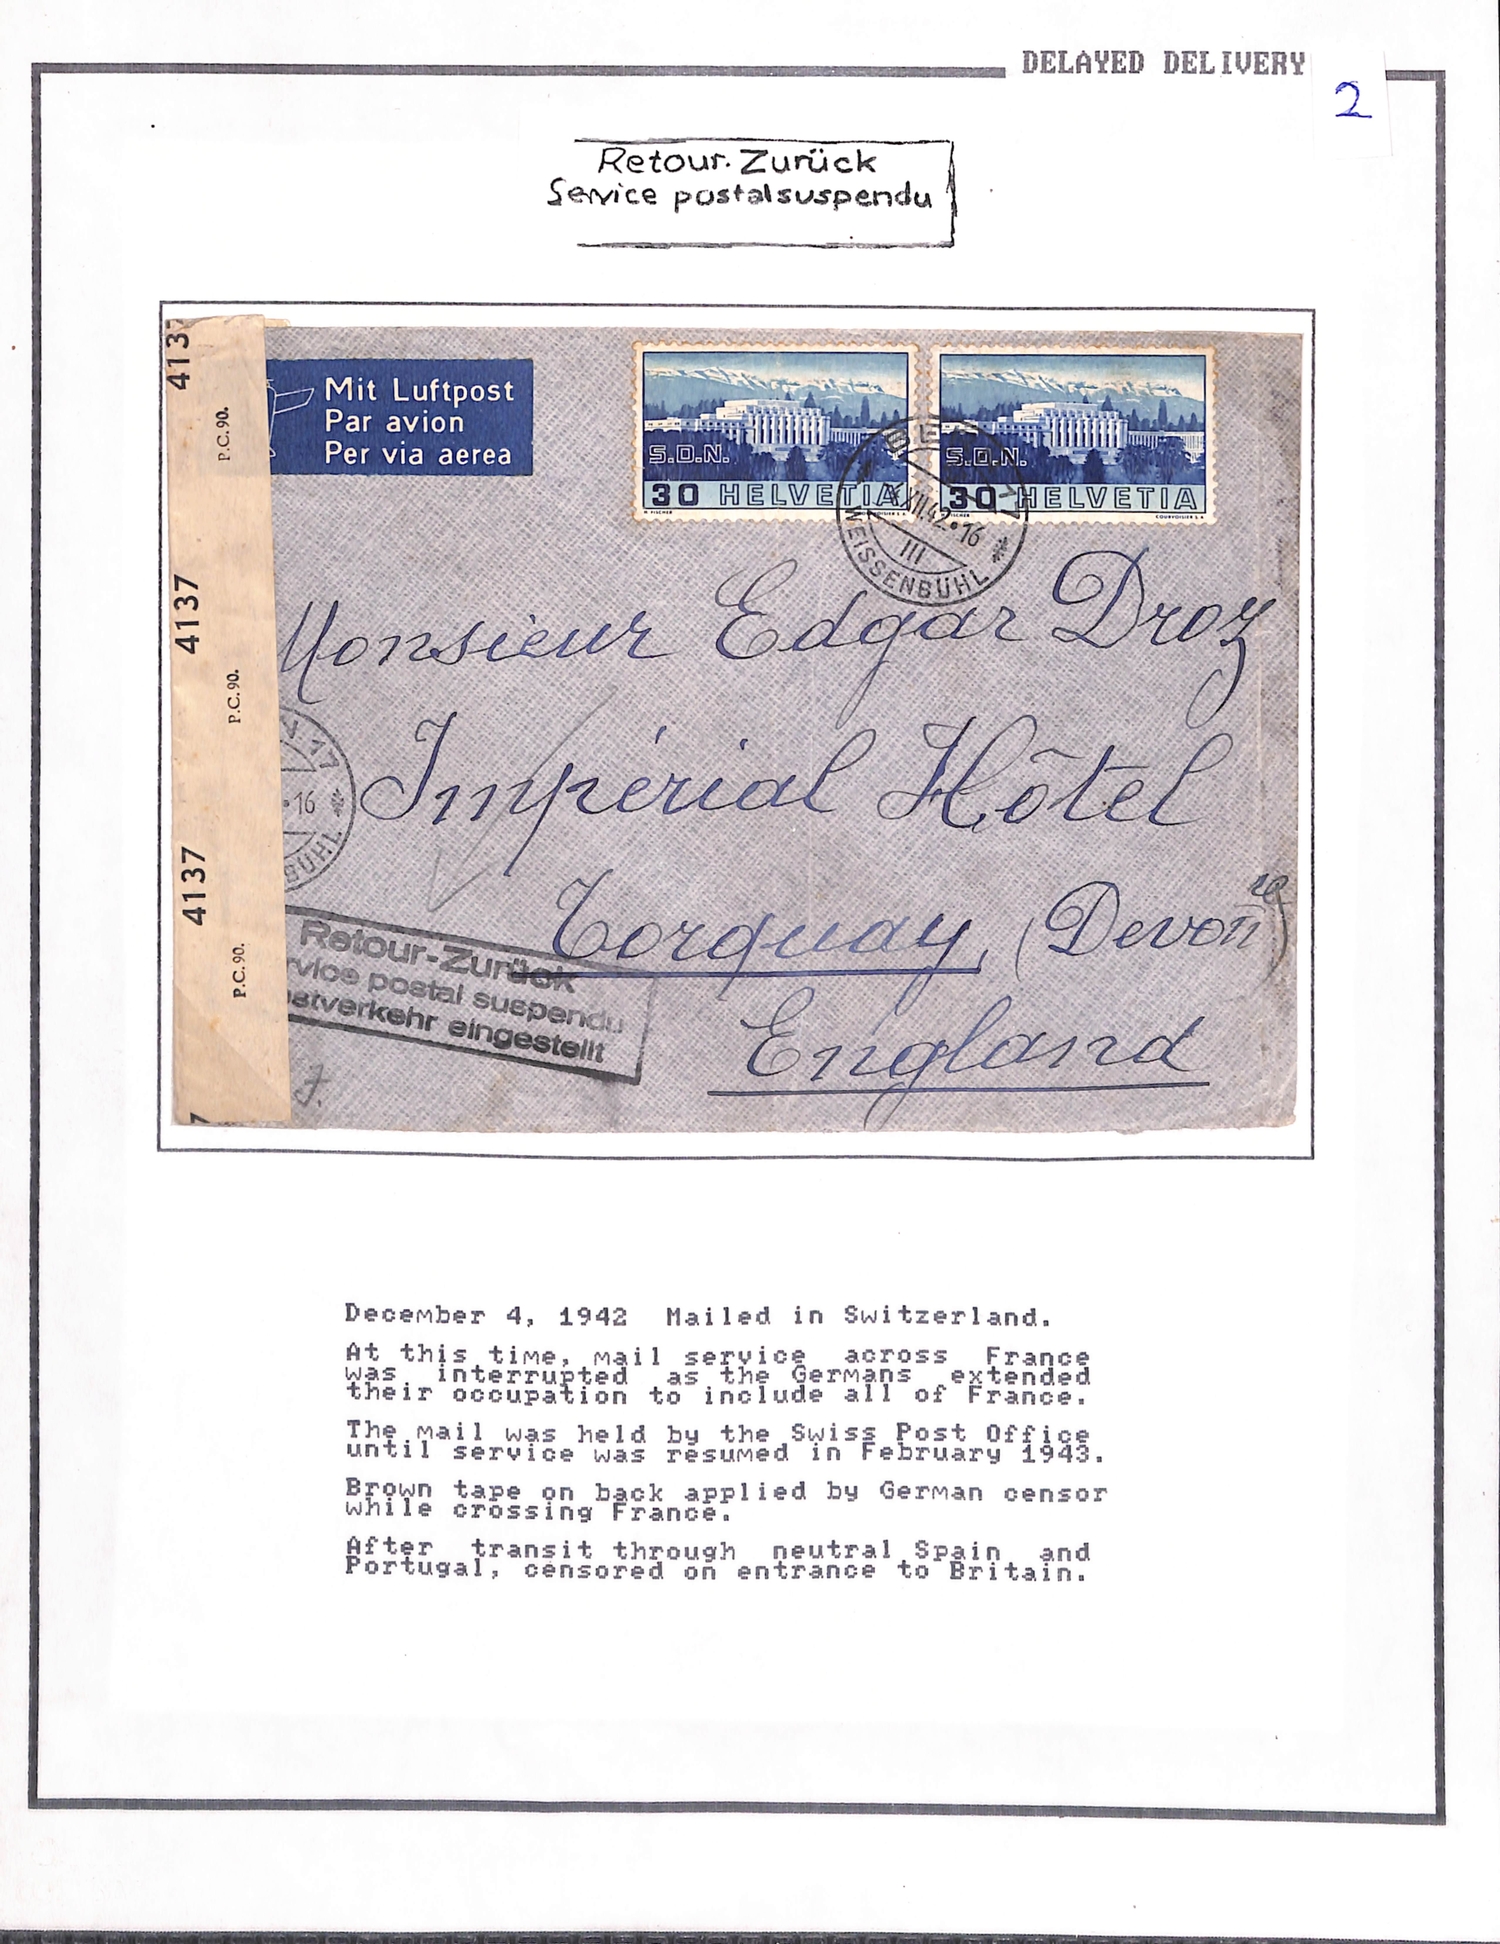 DELAYED DELIVERY
2
Retour. Zurück
Service postal suspendu
4137
P.C. 90.
4137
P.C. 90.
4137
P.C. 90.
7
Mit Luftpost
Par avion
Per via aerea
S.D.N.
30 HELVETIA
S.D.N.
30 HELVETIA
XII.42•16
III
WEISSENBÜHL
Monsieur Edgar Droz
Impérial Hôtel
Torquay, (Devon)
England
17
•16
BÜHL
Retour-Zurück
rvice postal suspendu
stverkehr eingestellt
December 4, 1942 Mailed in Switzerland.
At this time, mail service across France
was interrupted as the Germans extended
their occupation to include all of France.
The mail was held by the Swiss Post Office
until service was resumed in February 1943.
Brown tape on back applied by German censor
while crossing France.
After transit through neutral Spain and
Portugal, censored on entrance to Britain.